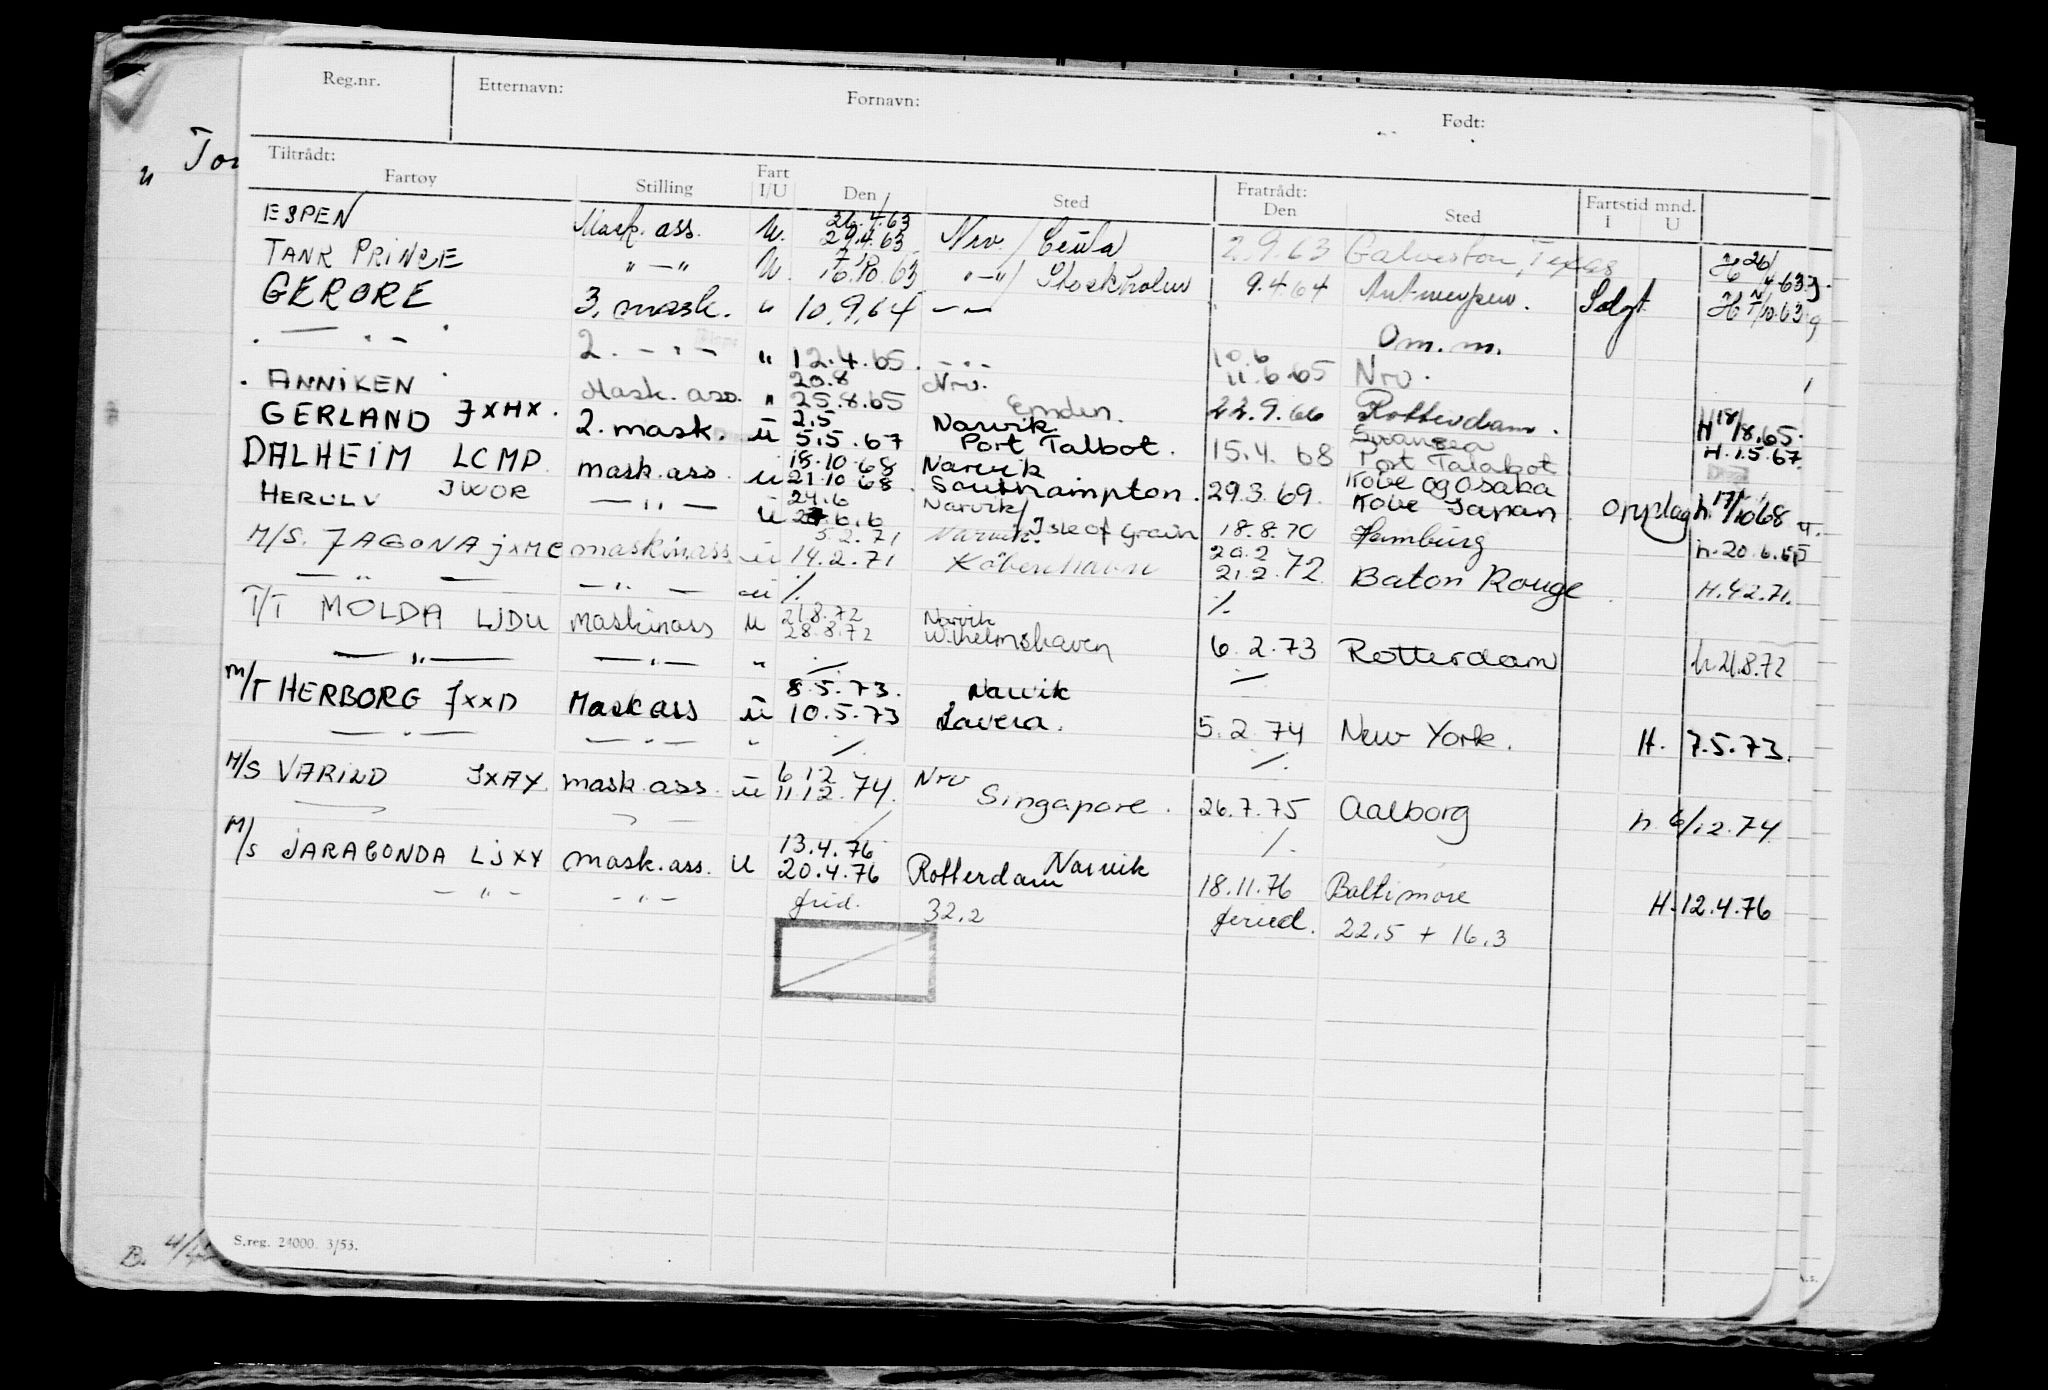 Reg.nr. Etternavn: Fornavn: Født:
„ Tor
Tiltrådt: Fratrådt: Fartstid mnd.
Fartøy Stilling Fart I/U Den Sted Den Sted I U
ESPEN Mask. ass. U. 26.4.63 29.4.63 Nrv. / Ceuta 2.9.63 Galveston, Texas H 26/4 63
TANK PRINCE " — " U. 7/10 16.10.63 " — " / Stockholm 9.4.64 Antwerpen. Solgt H 7/10.63
GERORE 3. mask. " 10.9.64 — — Om.m.
— " — 2. — " — " 12.4.65. — " — 10.6 11.6.65 Nrv.
ANNIKEN Mask. ass. " 20.8 25.8.65 Nrv. Emden. 22.9.66 Rotterdam. H 18/8.65.
GERLAND JXHX. 2. mask. ü 2.5 5.5.67 Narvik Port Talbot. 15.4.68 Swansea Port Talabot H.1.5.67.
DALHEIM LCMP. mask.ass. u 18.10.68 21.10.68. Narvik Southampton. 29.3.69. Kobe og Osaka Kobe Japan. Opplag h.17/10 68
JWOR — " — ü 24.6 Narvik/ Isle of Grain 18.8.70 Hamburg h.20.6.
M/S. JAGONA JXMC maskinass ü 5.2.71 14.2.71 Narvik. København 20.2 21.2.72 Baton Rouge H.4.2.71.
— " — — " — ü ⁒ ⁒
T/T MOLDA LJDU Maskinass U 21.8.72 28.8.72 Narvik Wilhelmshaven 6.2.73 Rotterdam h.21.8.72
— " — — " — " ⁒ ⁒
M/T HERBORG JXXD Mask ass ü 8.5.73. 10.5.73 Narvik Lavera. 5.2.74 New York. H. 7.5.73.
— " — — " — " ⁒ ⁒
M/S VARILD JXAY. mask.ass. ü 6.12 11.12.74. Nrv Singapore. 26.7.75 Aalborg h. 6/12.74
M/S JARAGONDA LJXY mask.ass. U 13.4.76 20.4.76 Rotterdam Narvik 18.11.76 Baltimore H.12.4.76
— " — — " — frid. 32,2 feried. 22,5 + 16,3
B. 4/4
S.reg. 24000. 3/53.